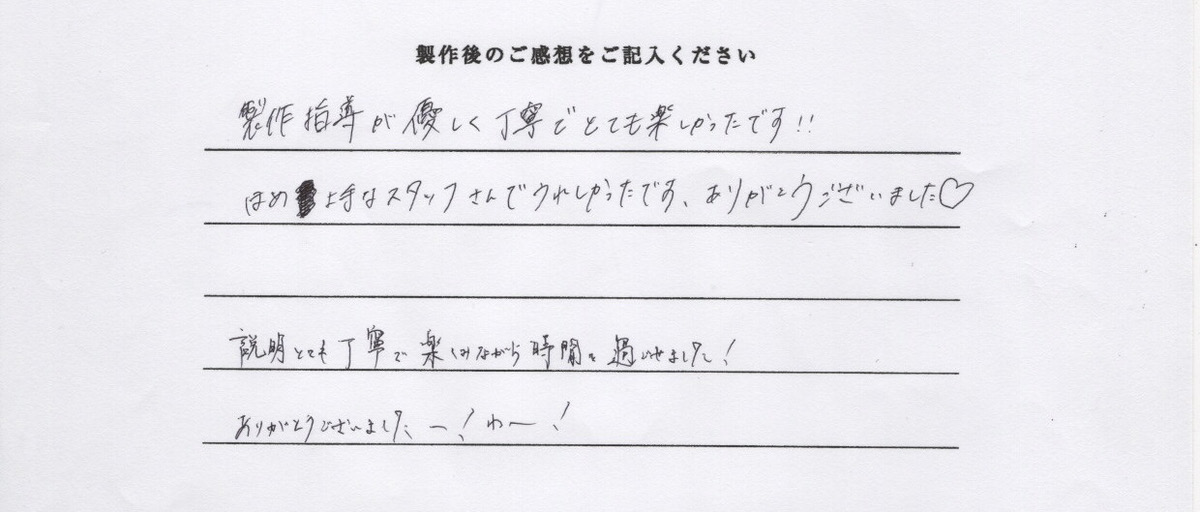 製作後のご感想をご記入ください
製作指導が優しく丁寧でとても楽しかったです!!
ほめ上手なスタッフさんでうれしかったです、ありがとうございました♡
説明とても丁寧で楽しみながら時間を過ごせました!
ありがとうございました〜!わ〜!